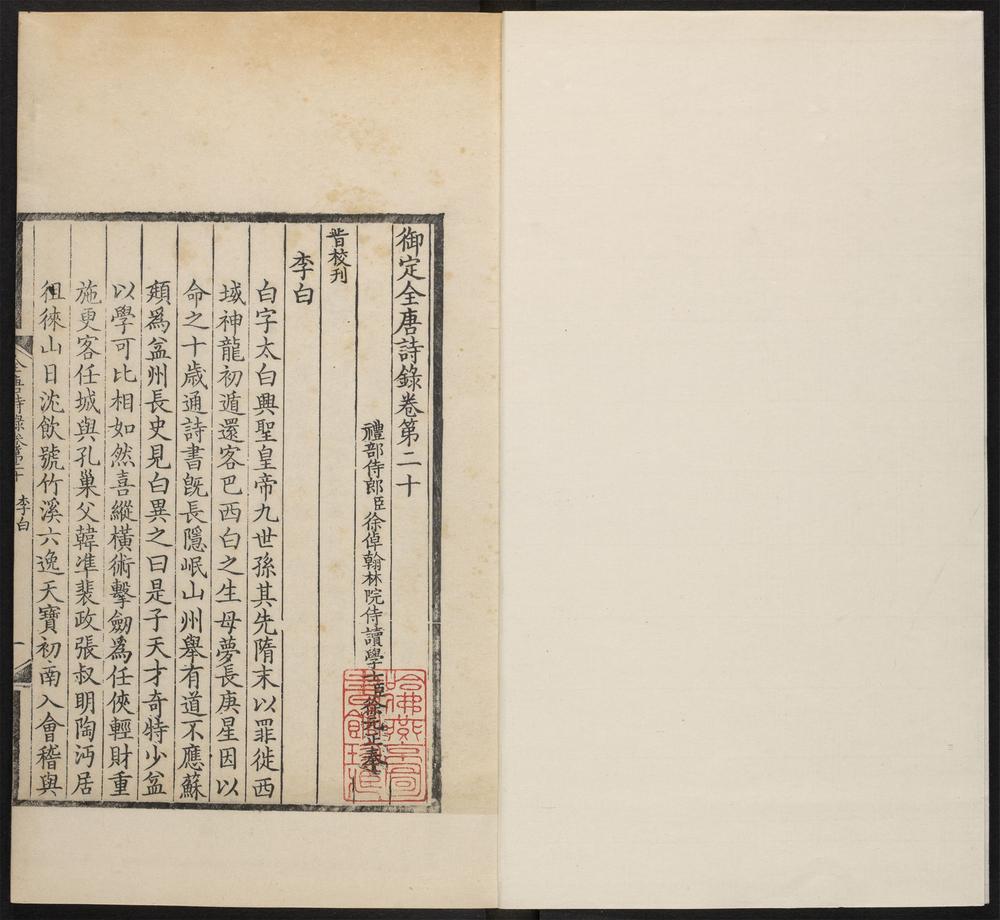 御定全唐詩錄卷第二十
禮部侍郎臣徐倬翰林院侍讀學士臣徐元正奉
旨校刊
李白
白字太白興聖皇帝九世孫其先隋末以罪徙西
域神龍初遁還客巴西白之生母夢長庚星因以
命之十歲通詩書旣長隱岷山州舉有道不應蘇
頲爲益州長史見白異之曰是子天才奇特少益
以學可比相如然喜縱橫術擊劒爲任俠輕財重
施更客任城與孔巢父韓準裴政張叔明陶沔居
徂徠山日沈飲號竹溪六逸天寶初南入會稽與
全唐詩錄卷第二十 李白 一
哈佛燕京圖
書館珍